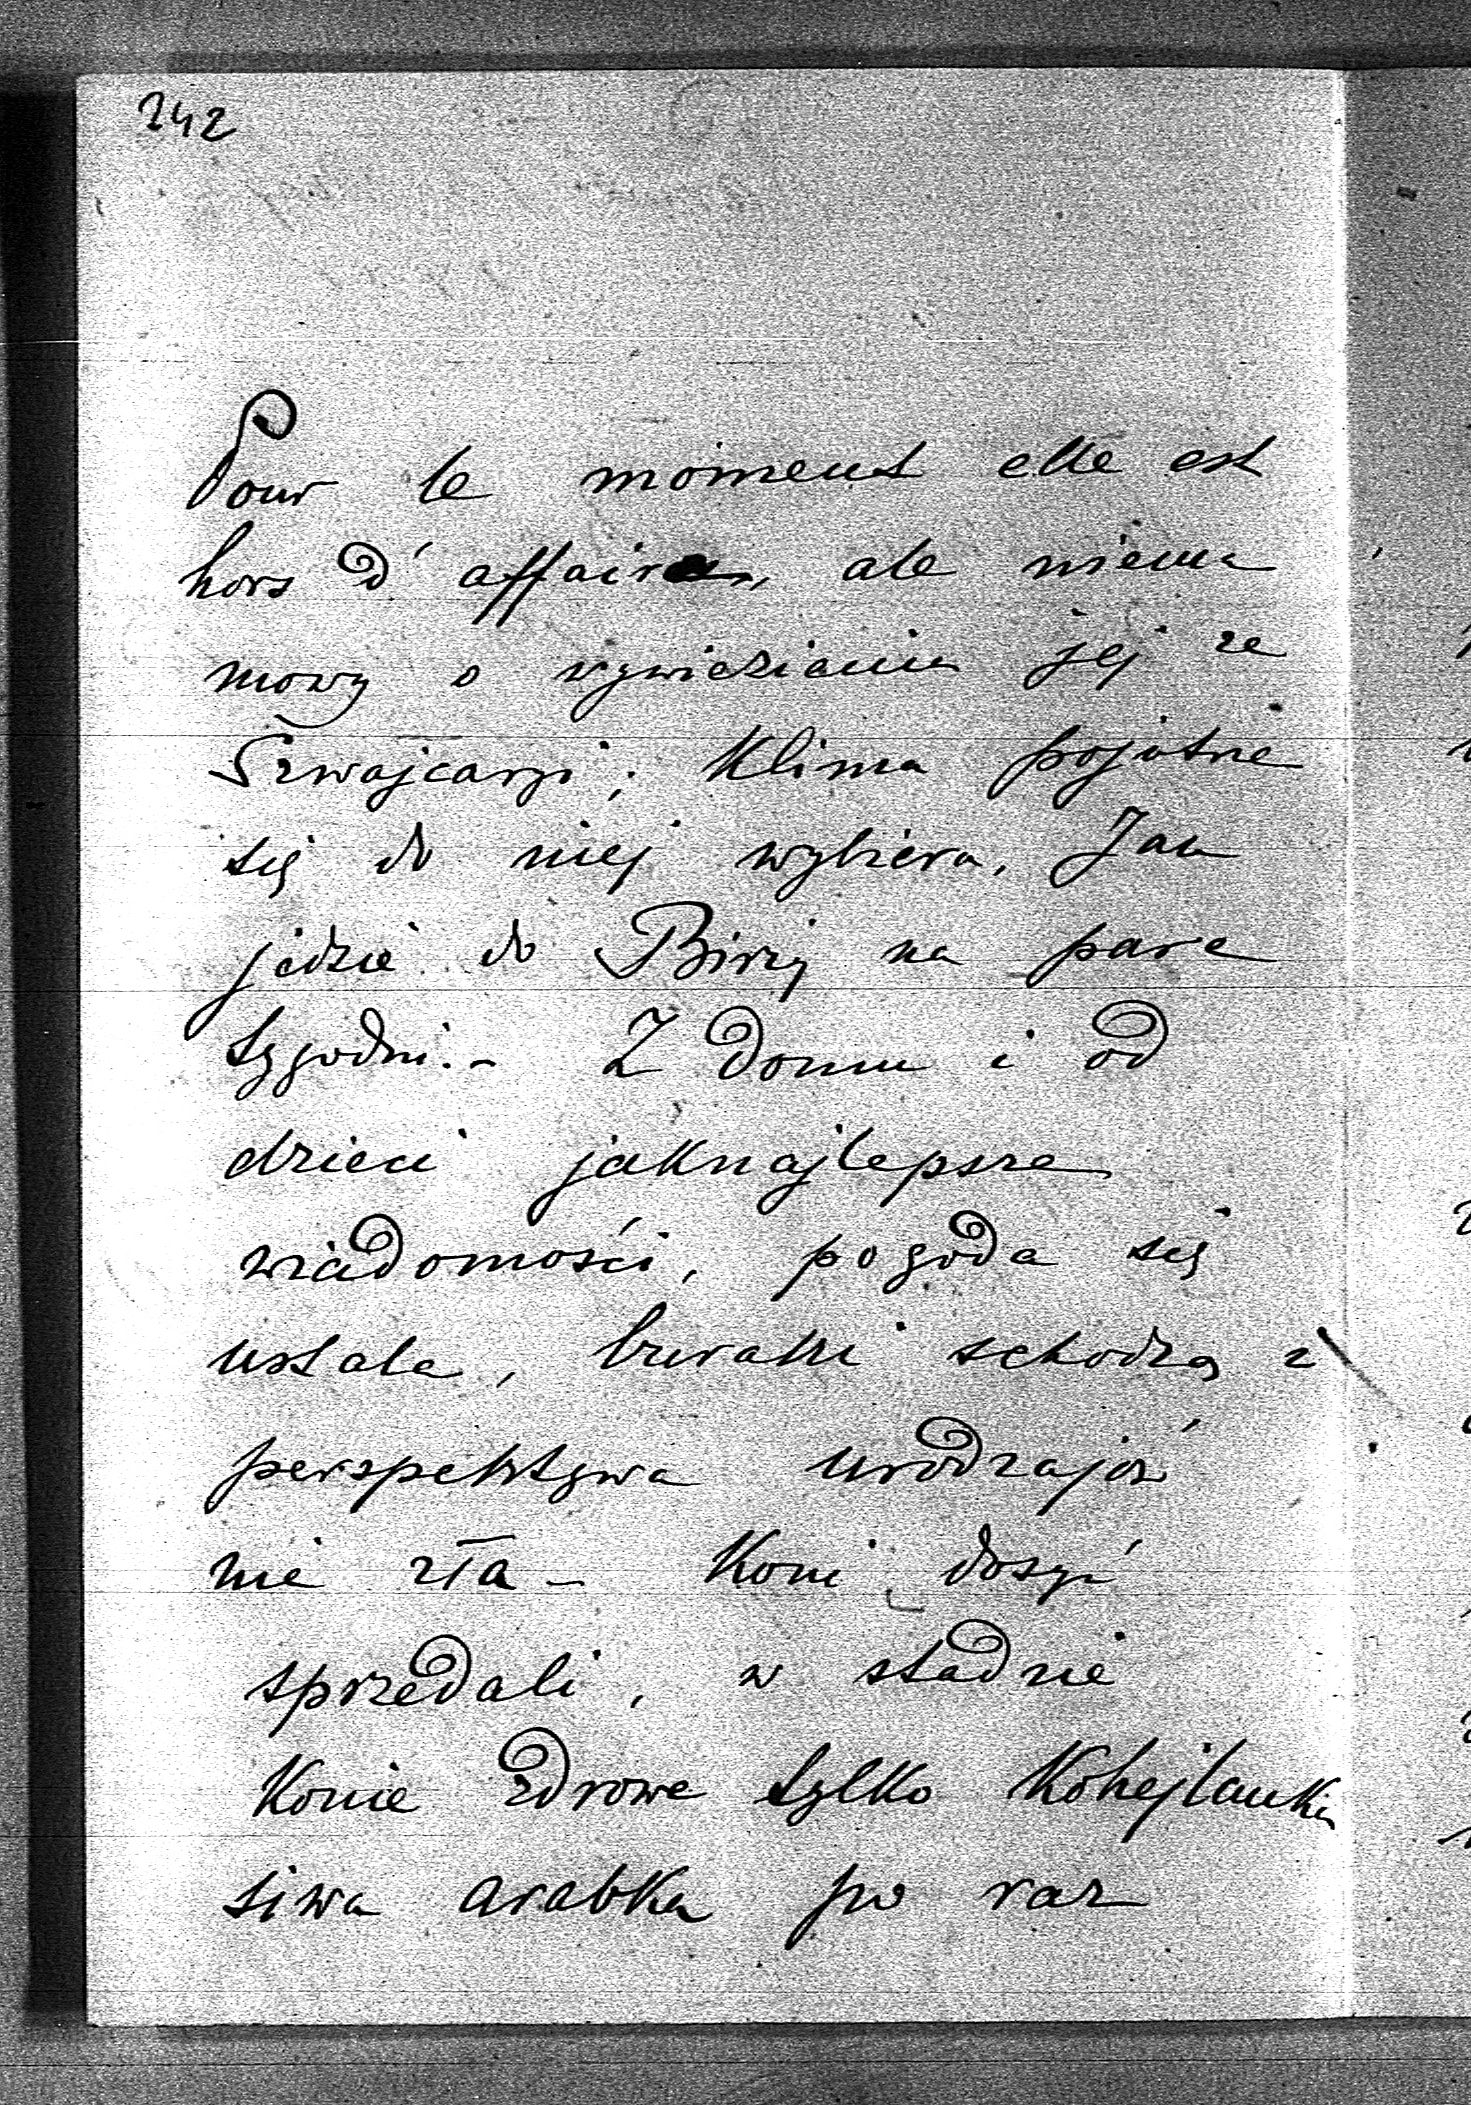 242
Pour le moment elle est
hors d'affaire, ale niema
mowy o wywiezieniu jej ze
Szwajcaryi; Klima pojutrze
się do niej wybiera. Jan
jedzie do Birży na parę
tygodni. - Z domu i od
dzieci jaknajlepsze
wiadomości, pogoda się
ustala, buraki schodzą i
perspektywa urodzajów
nie zła - Koni dosyć
sprzedali, w stadzie
Konie zdrowe tylko Kohejlanka
siwa arabka po raz